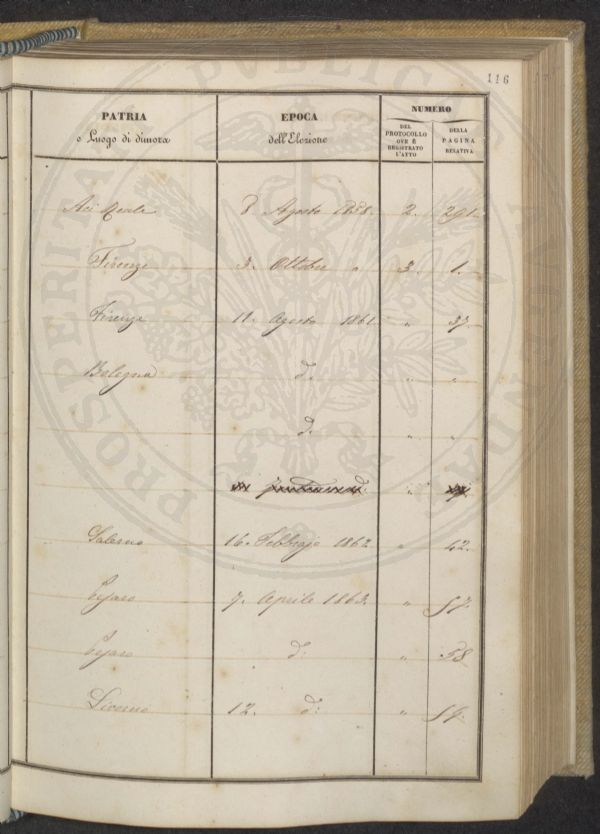 116
PATRIA
o Luogo di dimora
EPOCA
dell'Elezione
NUMERO
DEL
PROTOCOLLO
OVE È
REGISTRATO
L'ATTO
DELLA
PAGINA
RELATIVA
Aci Reale 8 Agosto 1858. 2. 291.
Firenze 3. Ottobre " 3. 1.
Firenze 11. Agosto 1861. " 37.
Bologna d. " "
d. " "
d. "
Salerno 16. Febbraio 1862 " 42.
Pesaro 7. Aprile 1863. " 57.
Pesaro d: " 58
Livorno 12. d: "
PROSPERITATI PUBLICAE